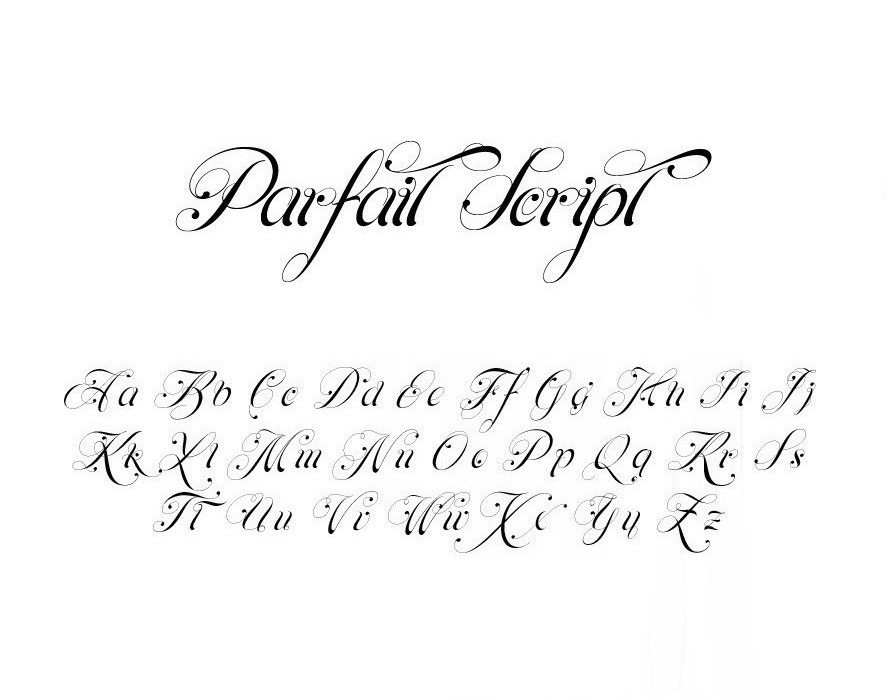 Parfait Script
Aa Bb Cc Dd Ee Ff Gg Hh Ii Jj
Kk Ll Mm Nn Oo Pp Qq Rr Ss
Tt Uu Vv Ww Xx Yy Zz